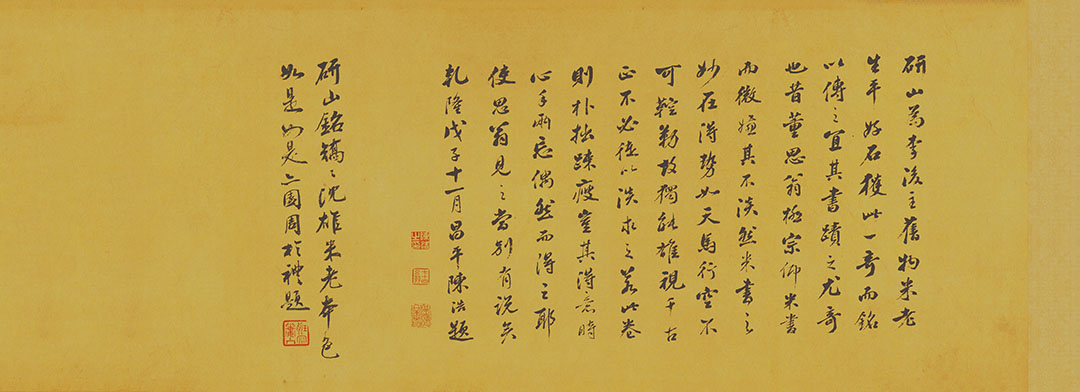 研山為李後主舊物米老
生平好石獲此一奇而銘
以傳之宜其書蹟之尤奇
也昔董思翁極宗仰米書
而微嫌其不淡然米書之
妙在得勢如天馬行空不
可鞚勒故獨能雄視千古
正不必徒以淡求之若此卷
則朴拙疎瘦豈其得意時
心手兩忘偶然而得之耶
使思翁見之當別有説矣
乾隆戊子十一月昌平陳浩題
研山銘沈雄米老本色
如是如是亦園周於禮題